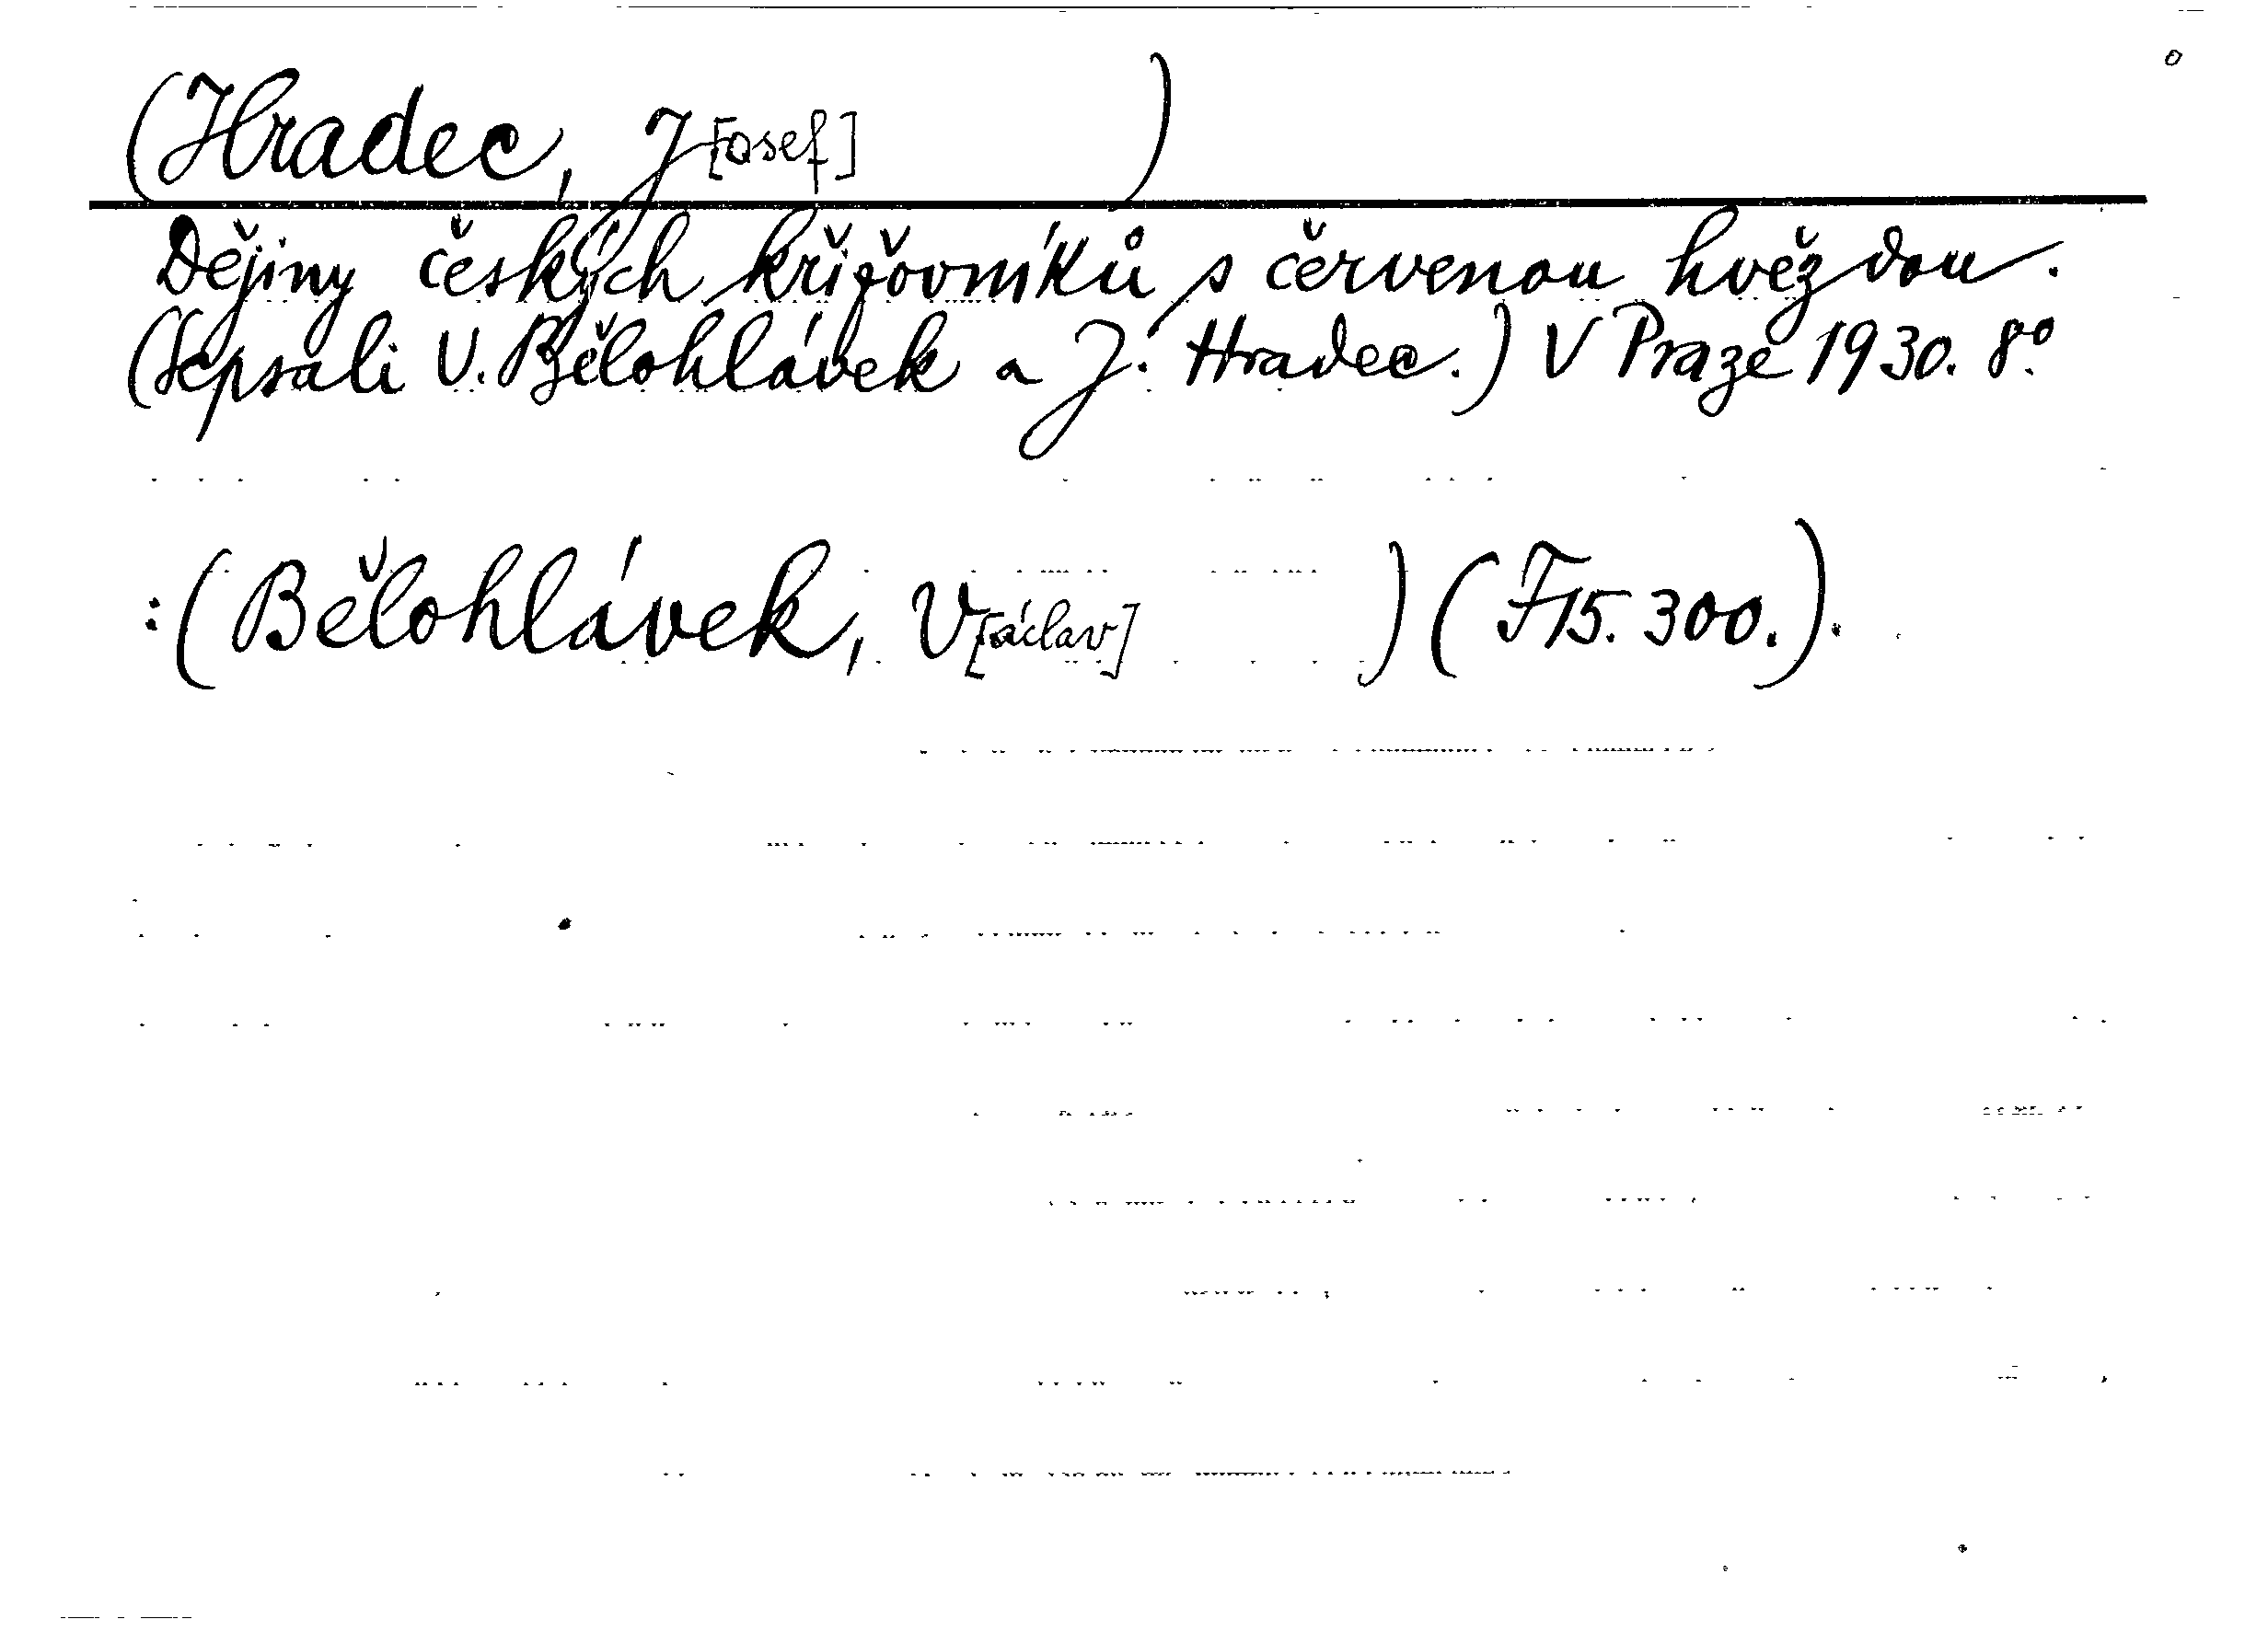 (Hradec, J[osef] )
Dějiny českých křižovníků s červenou hvězdou.
(Sepsali V. Bělohlávek a J. Hradec.) V Praze 1930. 8°.
:(Bělohlávek, V[áclav] ) (F 15.300.).